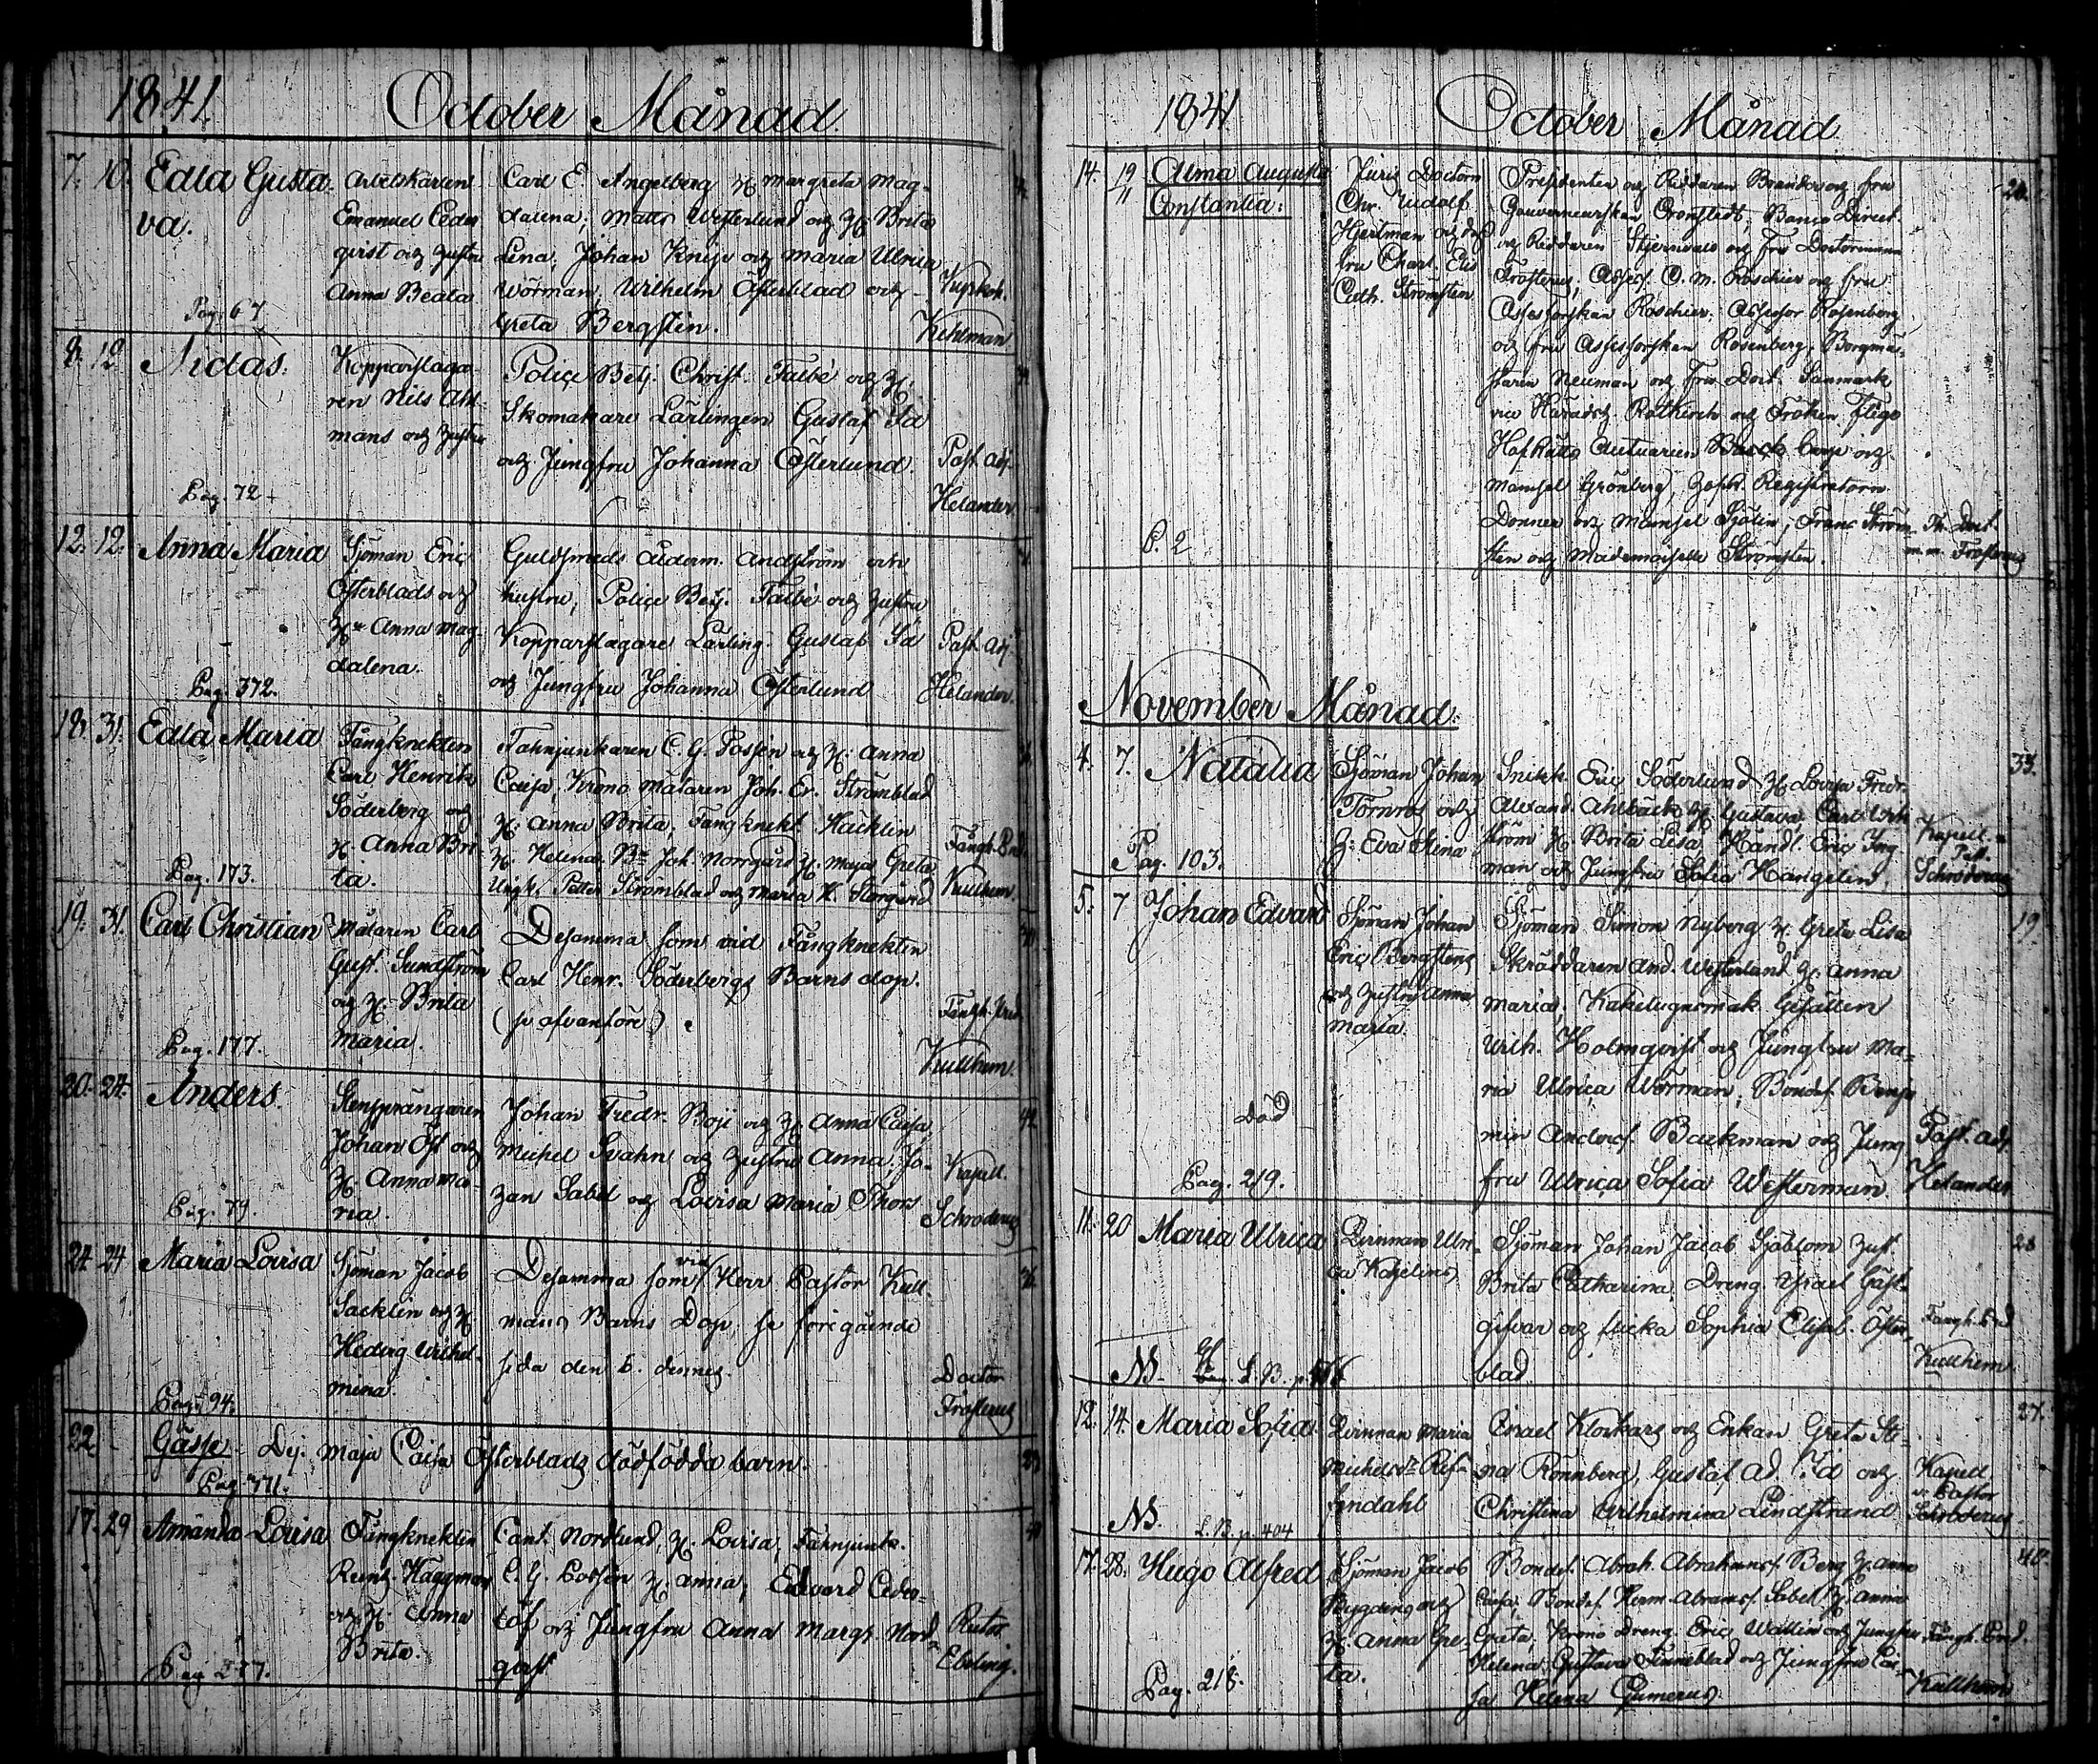 1841. October Månad.
7. 10. Edla Gusta-
va.
Pag. 67
Arbetskarlen
Emanuel Ceder
qvist och hustru
Anna Beata
Carl E. Angelberg H. Margreta Mag-
dalena, Matts Westerlund och H. Brita
Lena, Johan Knif och Maria Ulrica
Wörman, Wilhelm Österblad och
Greta Bergsten.
Kyrkoh.
Kihlman
8. 12 Nidas.
Pag. 72
Kopparslaga-
ren Nils Ahl-
mans och hustru
Police Betj. Christ. Talbé och H.
Skomakare Lärlingen Gustaf Id
och Jungfru Johanna Österlund.
Past. Adj.
Helander.
12. 12. Anna Maria
Pag. 372.
Sjöman Eric
Österblads och
Hu Anna Mag-
dalena.
Guldsmeds Ålderm. Andström och
hustru, Police Betj. Talbé och hustru
Kopparslagare Lärling. Gustaf Id
och Jungfru Johanna Österlund
Past. Adj.
Helander.
18. 31. Edla Maria
Pag. 173.
Fångknekten
Carl Henrik
Söderberg och
H. Anna Bri
ta.
Fahnjunkaren C. G. Possén och H. Anna
Caisa, Krono Mätaren Joh. Er. Strömblad
H. Anna Brita, Fångknekt Häcklin
H. Helena Bn Joh. Norrgård H. Maja Greta
Petter Strömblad och Maria H. Storgård
Fångh. Pred.
Kullhem.
19. 31. Carl Christian
Pag. 177.
Mätaren Carl
Gust. Sundström
och H. Brita
Maria.
Desamma som vid Fångknekten
Carl Henr. Söderbergs Barns dop.
(se ofvanföre)
Fångh. Pred.
Kullhem.
20. 24. Anders.
Pag. 79.
Stensprängaren
Johan Öst och
H. Anna Ma-
ria.
Johan Fredr. Boji och H. Anna Caisa,
Michel Svahn och hustru Anna, Jo-
han Sabel och Lovisa Maria Thors
Kapell.
Schroderus
24 24 Maria Lovisa
Pag. 94.
Sjöman Jacob
Sacklén och H.
Hedvig Wilhel-
mina.
Desamma som vid Herr Pastor Kull-
mans Barns Dop, se föregående
sida den 6. dennes.
Doctor
Frosterus
22 Gåsse - Dej. Maja Caisa Österblads dödfödda barn.
Pag. 371.
17. 29 Amanda Lovisa
Pag. 177.
Fångknekten
Reinh. Häggman
och H. Anna
Brita.
Cant. Nordlund, H. Lovisa, Fahnjunk.
C. G. Possén H. Annia, Edvard Ceder-
löf och Jungfru Anna Margr. Nord-
qvist
Rector
Ebeling.
1841 October Månad
14. 19/11 Alma Augusta
Constantia:
P. 2
Juris Doctorn
Chr. Rudolf
Hjertman och dess
fru Charl. Elis
Cath. Strömsten
Presidenten och Riddaren Brander och fru
Gouverneurskan Cronstedt, Banco Direct.
och Riddaren Stjernvall och Fru Doctorinnan
Frosterus, Assess. C. M. Roschier och fru
Assessorskan Roschier. Assessor Rosenberg
och fru Assessorskan Rosenberg, Borgmäs-
taren Neuman och Fru Doct. Sanmark
vice Häradsh. Rotkirch och Fröken Flege
Hofrätts Actuarien Carp och
Mamsel Grönberg, Hofr. Registratorn
Donner och Mamsel Sjölin, Frans Ström-
sten och Mademoiselle Strömsten.
Th. Doct.
m.m. Frosterus
November Månad.
4. 7. Natalia
Pag. 103.
Sjöman Johan
Törnros och
H. Eva Stina
Snick. Eric Söderlund H. Lovisa Fredr.
Alexand. Ahlbäck H. Gustava, Carl
ström H. Brita Lisa, Händl. Eric Ing
man och Jungfru Sofia Hangelin
Kapell.
Past.
Schroderus
33.
5. 7 Johan Edvard
Död
Pag. 219.
Sjöman Johan
Eric Bergstens
och hustru Anna
Maria.
Sjöman Simon Nyberg H. Greta Lisa
Skräddaren And. Westerlund H. Anna
Maria, Kakelugnsmak. Gesällen
Wilh. Holmqvist och Jungfru Ma-
ria Ulrica Wörman, Bondes. Benja
min Anders. Backman och Jung
fru Ulrica Sofia Westerman
Past. Adj.
Helander
19
11. 20 Maria Ulrica
NB. L. B. p.
Qvinnans Ulri-
ca Kajelins
Sjöman Johan Jacob Sjöblom hust.
Brita Catharina, Dreng Israel Gäst-
gifvar och flicka Sophia Elisab. Öster-
blad
Fångh. Pred
Kullhem
28
12. 14. Maria Sofia.
NB. L. B. p. 404
Qvinnan Maria
Michelsdr Ref-
fendahl
Israel Klockars och Enkan Greta Sti-
na Rönnberg, Gustaf Ad. Id och
Christina Wilhelmina Lindstrand
Kapell.
v. Pastor
Schroderus
27.
17. 28. Hugo Alfred
Pag. 218.
Sjöman Jacob
Bygdeng och
H. Anna Gre-
ta.
Bondes. Abrah. Abrahams. Berg H. Anna
Caisa, Bondes. Herm. Abrams. Sabel H. Anna
Greta, Krono Dreng. Eric Wallin och Jungfru
Helena, Gustava Finneblad och Jungfru Cai-
sa Helena Gumerus.
Fångh. Pred.
Kullhem
40.